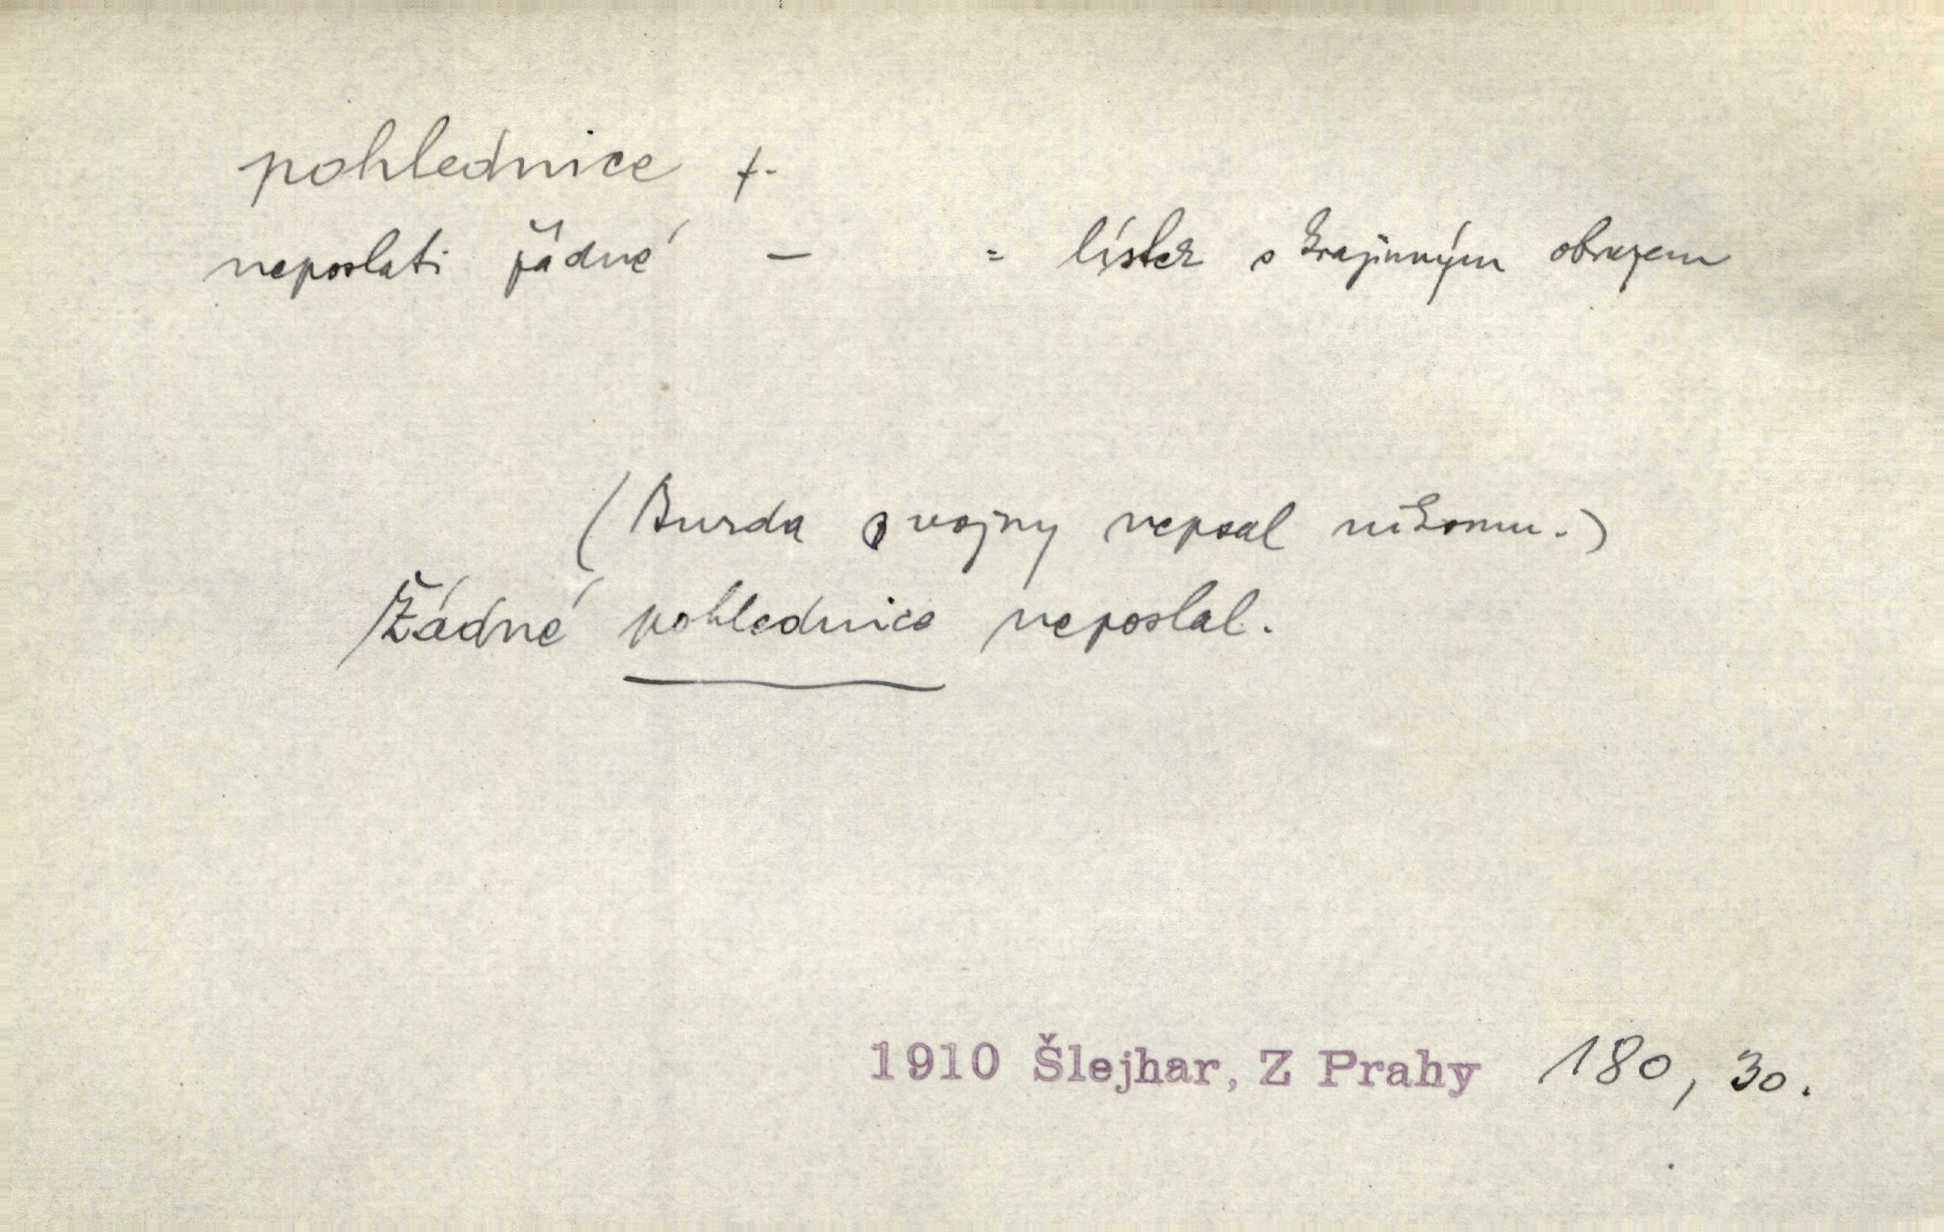 pohlednice f.
neposlati žádné — = lístek s krajinným obrazem
(Burda z vojny nepsal nikomu.)
Žádné pohlednice neposlal.
1910 Šlejhar, Z Prahy 180, 30.